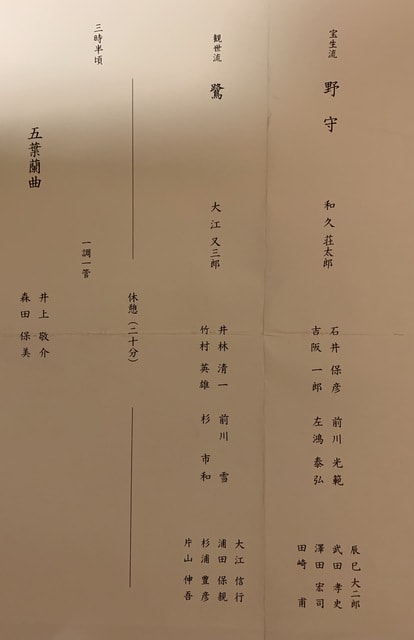 宝生流 野守 和久 荘太郎
石井 保彦
吉阪 一郎
前川 光範
左鴻 泰弘
辰巳 大二郎
武田 孝史
澤田 宏司
田崎 甫
観世流 鷺 大江 又三郎
井林 清一
竹村 英雄
前川 雪
杉 市和
大江 信行
浦田 保親
杉浦 豊彦
片山 伸吾
休憩(二十分)
三時半頃
一調一管
五葉蘭曲
井上 敬介
森田 保美